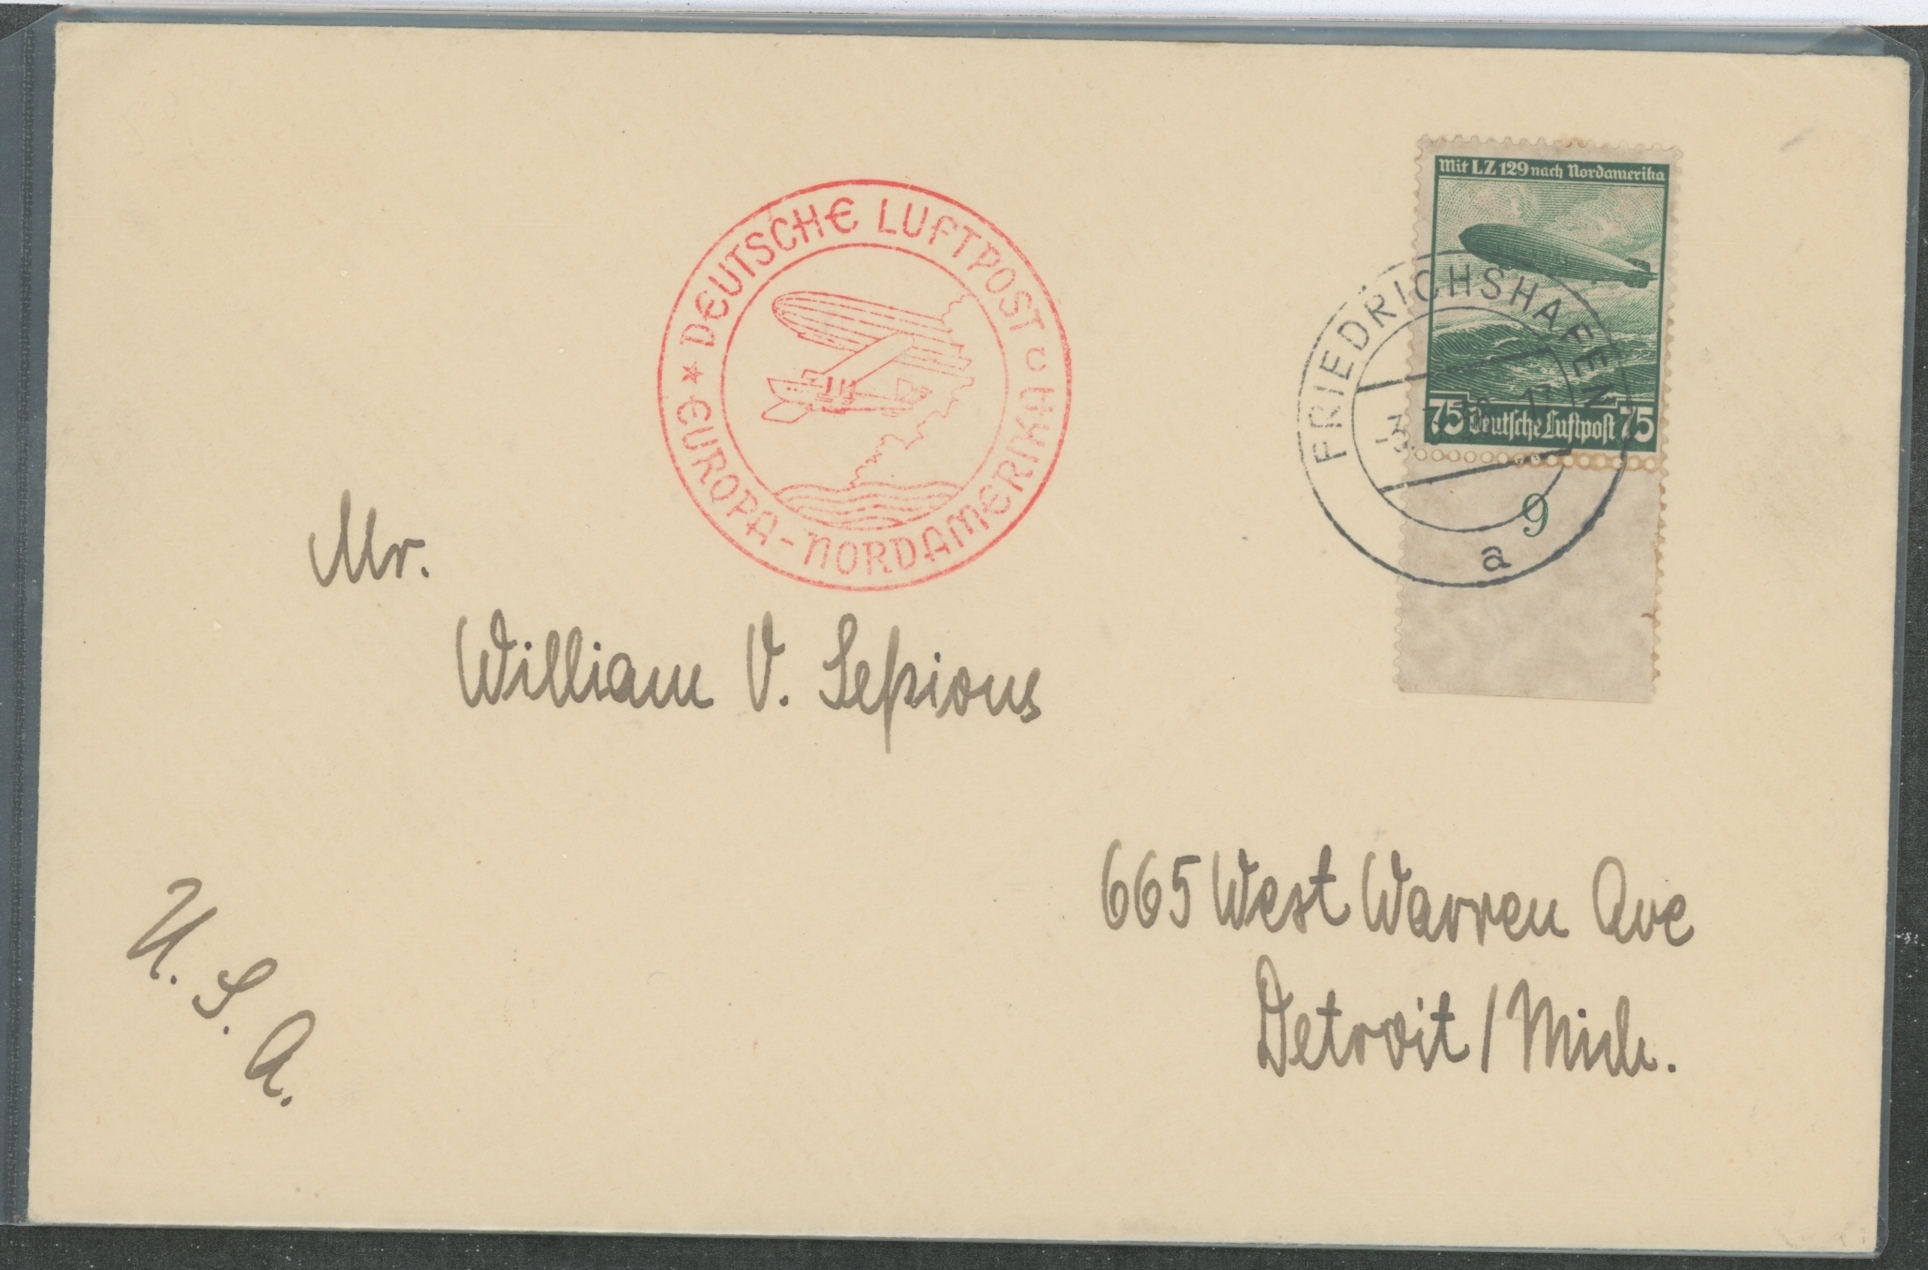 DEUTSCHE LUFTPOST c
* EUROPA-NORDAMERIKA
Mit LZ 129 nach Nordamerika
75 Deutsche Luftpost 75
FRIEDRICHSHAFEN
a
9
Mr.
William V.
665 West Warren Ave
Detroit / Mich.
U. S. A.